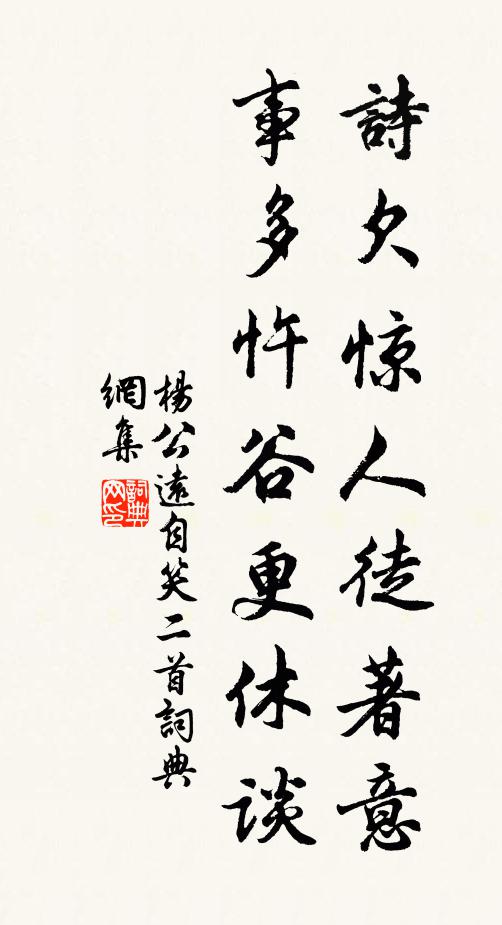 詩欠惊人徒著意
事多忤谷更休談
楊公遠自笑二首詞典
網集
詞典
网印